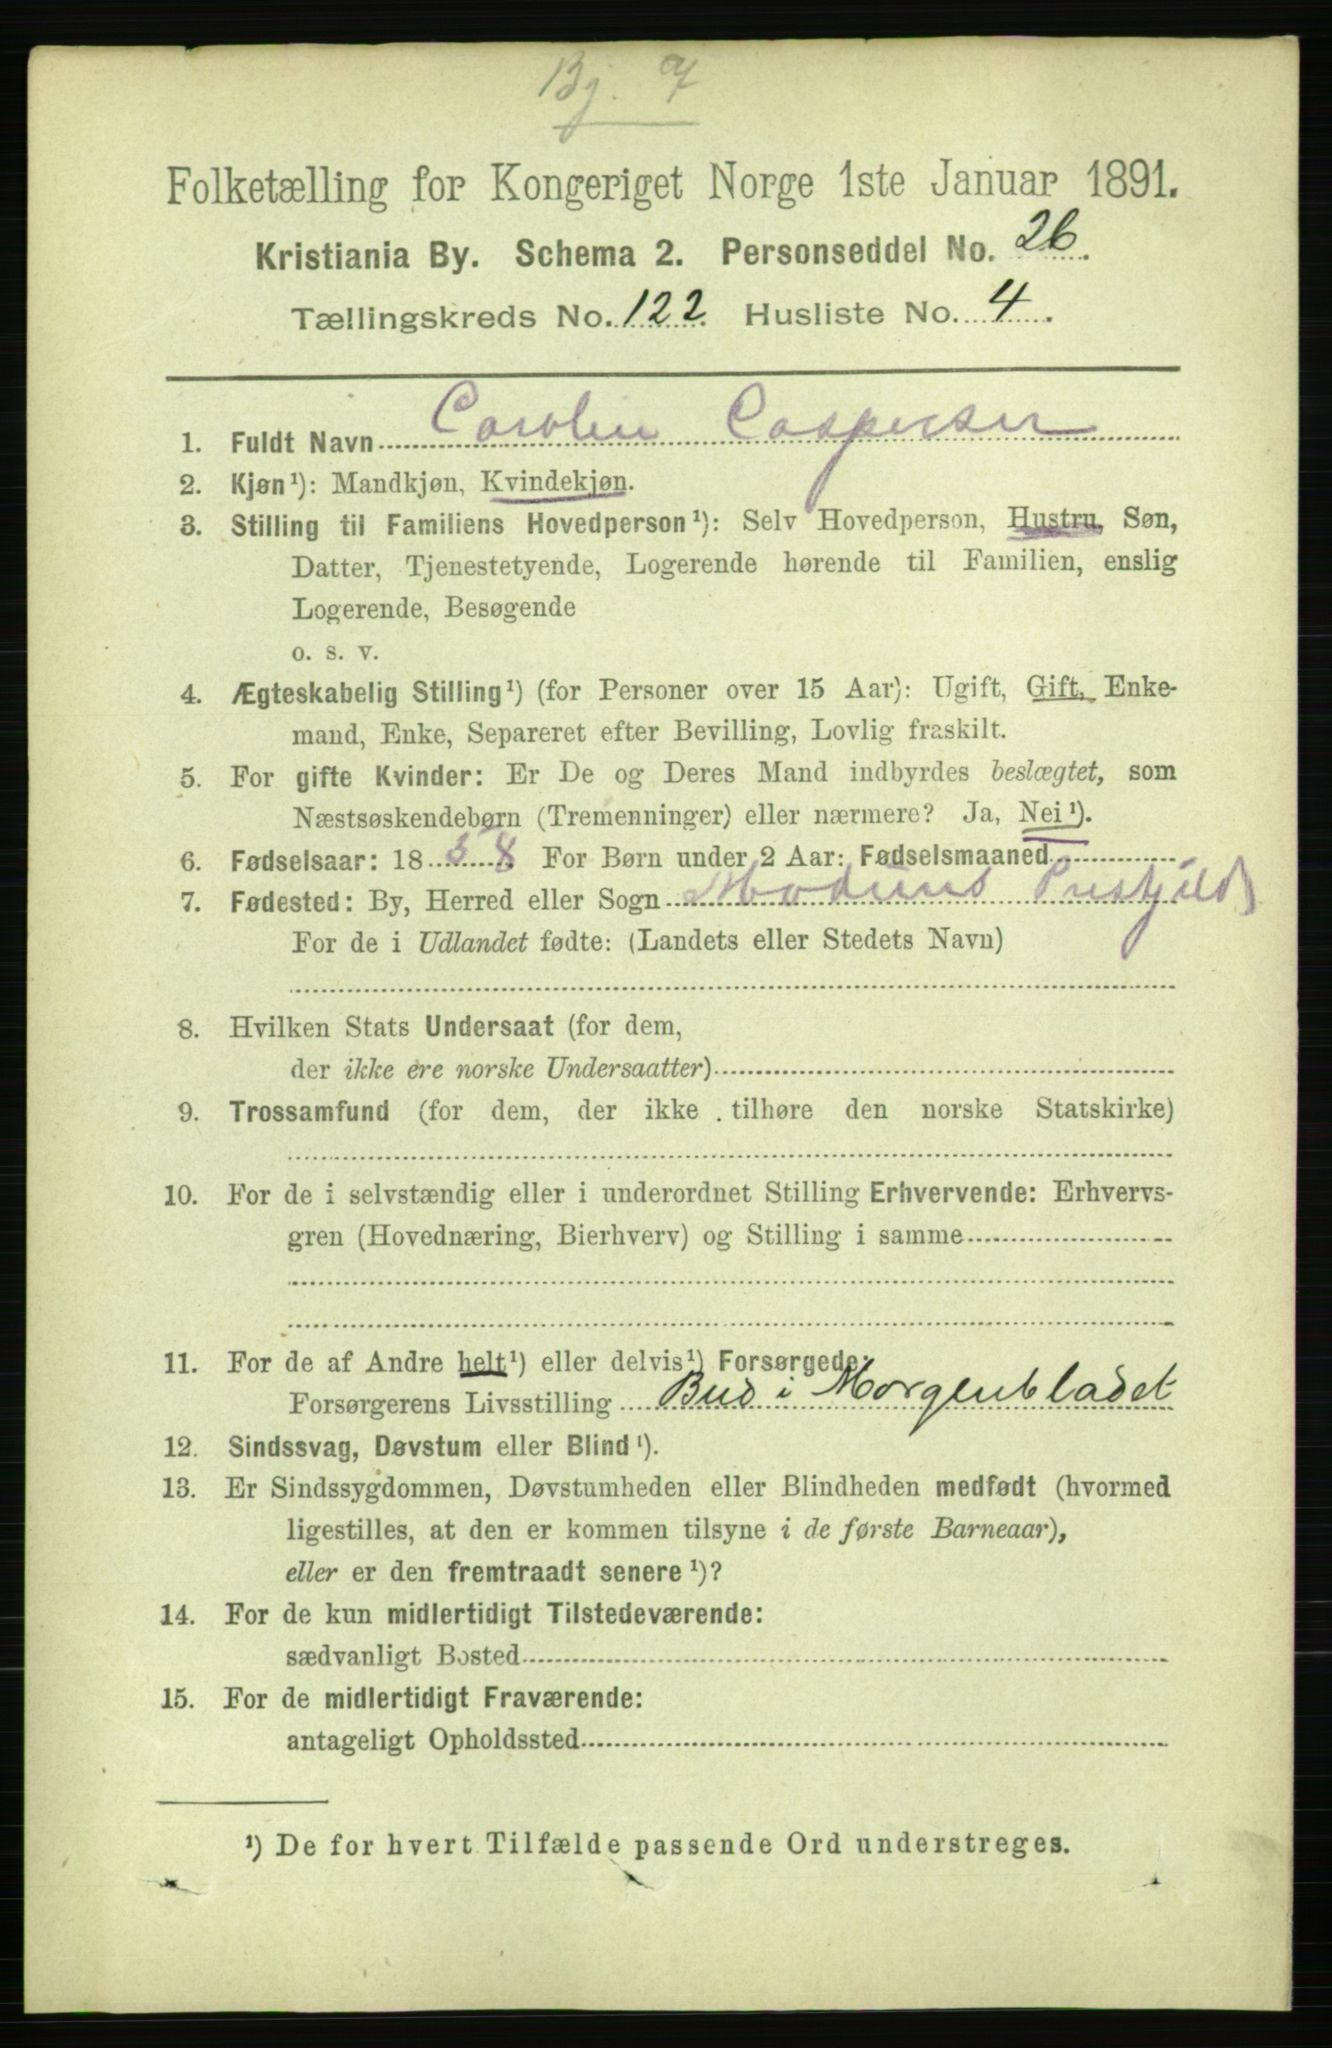 Bg. 7
Folketælling for Kongeriget Norge 1ste Januar 1891.
Kristiania By. Schema 2. Personseddel No. 26.
Tællingskreds No. 122. Husliste No. 4.
1. Fuldt Navn Carolin Caspersen
2. Kjøn¹): Mandkjøn, Kvindekjøn.
3. Stilling til Familiens Hovedperson¹): Selv Hovedperson, Hustru, Søn,
Datter, Tjenestetyende, Logerende hørende til Familien, enslig
Logerende, Besøgende
o. s. v.
4. Ægteskabelig Stilling¹) (for Personer over 15 Aar): Ugift, Gift, Enke-
mand, Enke, Separeret efter Bevilling, Lovlig fraskilt.
5. For gifte Kvinder: Er De og Deres Mand indbyrdes beslægtet, som
Næstsøskendebørn (Tremenninger) eller nærmere? Ja, Nei¹).
6. Fødselsaar: 1858. For Børn under 2 Aar: Fødselsmaaned
7. Fødested: By, Herred eller Sogn Modums Prestjeld
For de i Udlandet fødte: (Landets eller Stedets Navn)
8. Hvilken Stats Undersaat (for dem,
der ikke ere norske Undersaatter)
9. Trossamfund (for dem, der ikke tilhøre den norske Statskirke)
10. For de i selvstændig eller i underordnet Stilling Erhvervende: Erhvervs-
gren (Hovednæring, Bierhverv) og Stilling i samme
11. For de af Andre helt¹) eller delvis¹) Forsørgede:
Forsørgerens Livsstilling Bud i Morgenbladet
12. Sindssvag, Døvstum eller Blind¹).
13. Er Sindssygdommen, Døvstumheden eller Blindheden medfødt (hvormed
ligestilles, at den er kommen tilsyne i de første Barneaar),
eller er den fremtraadt senere¹)?
14. For de kun midlertidigt Tilstedeværende:
sædvanligt Bosted
15. For de midlertidigt Fraværende:
antageligt Opholdssted
¹) De for hvert Tilfælde passende Ord understreges.